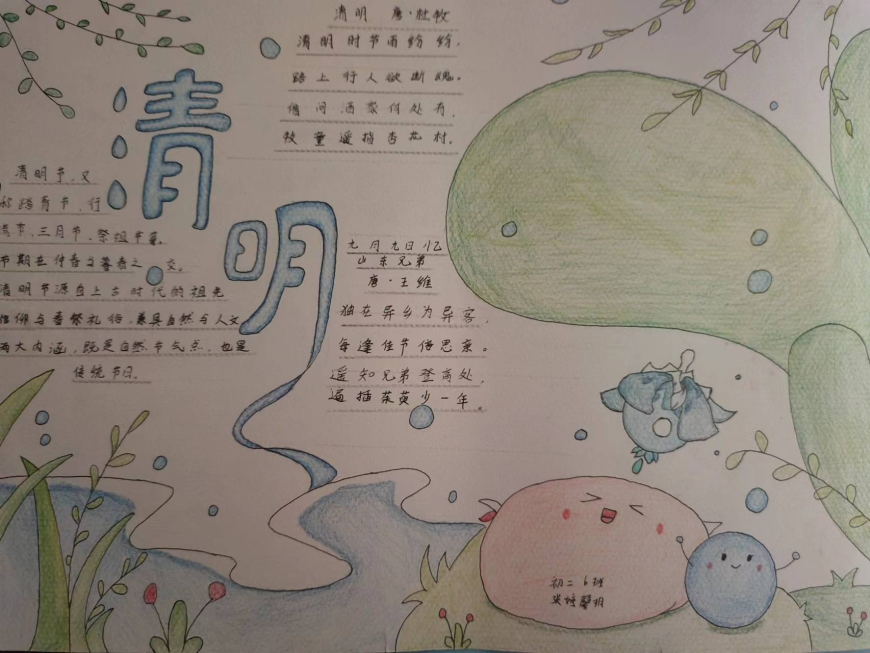 清明
清明 唐·杜牧
清明时节雨纷纷，
路上行人欲断魂。
借问酒家何处有，
牧童遥指杏花村。
清明节，又
称踏青节、行
清节、三月节、祭祖节等。
节期在仲春与暮春之交。
清明节源自上古时代的祖先
信仰与春祭礼俗，兼具自然与人文
两大内涵，既是自然节气点，也是
传统节日。
九月九日忆
山东兄弟
唐·王维
独在异乡为异客，
每逢佳节倍思亲。
遥知兄弟登高处，
遍插茱萸少一年。
初二6班